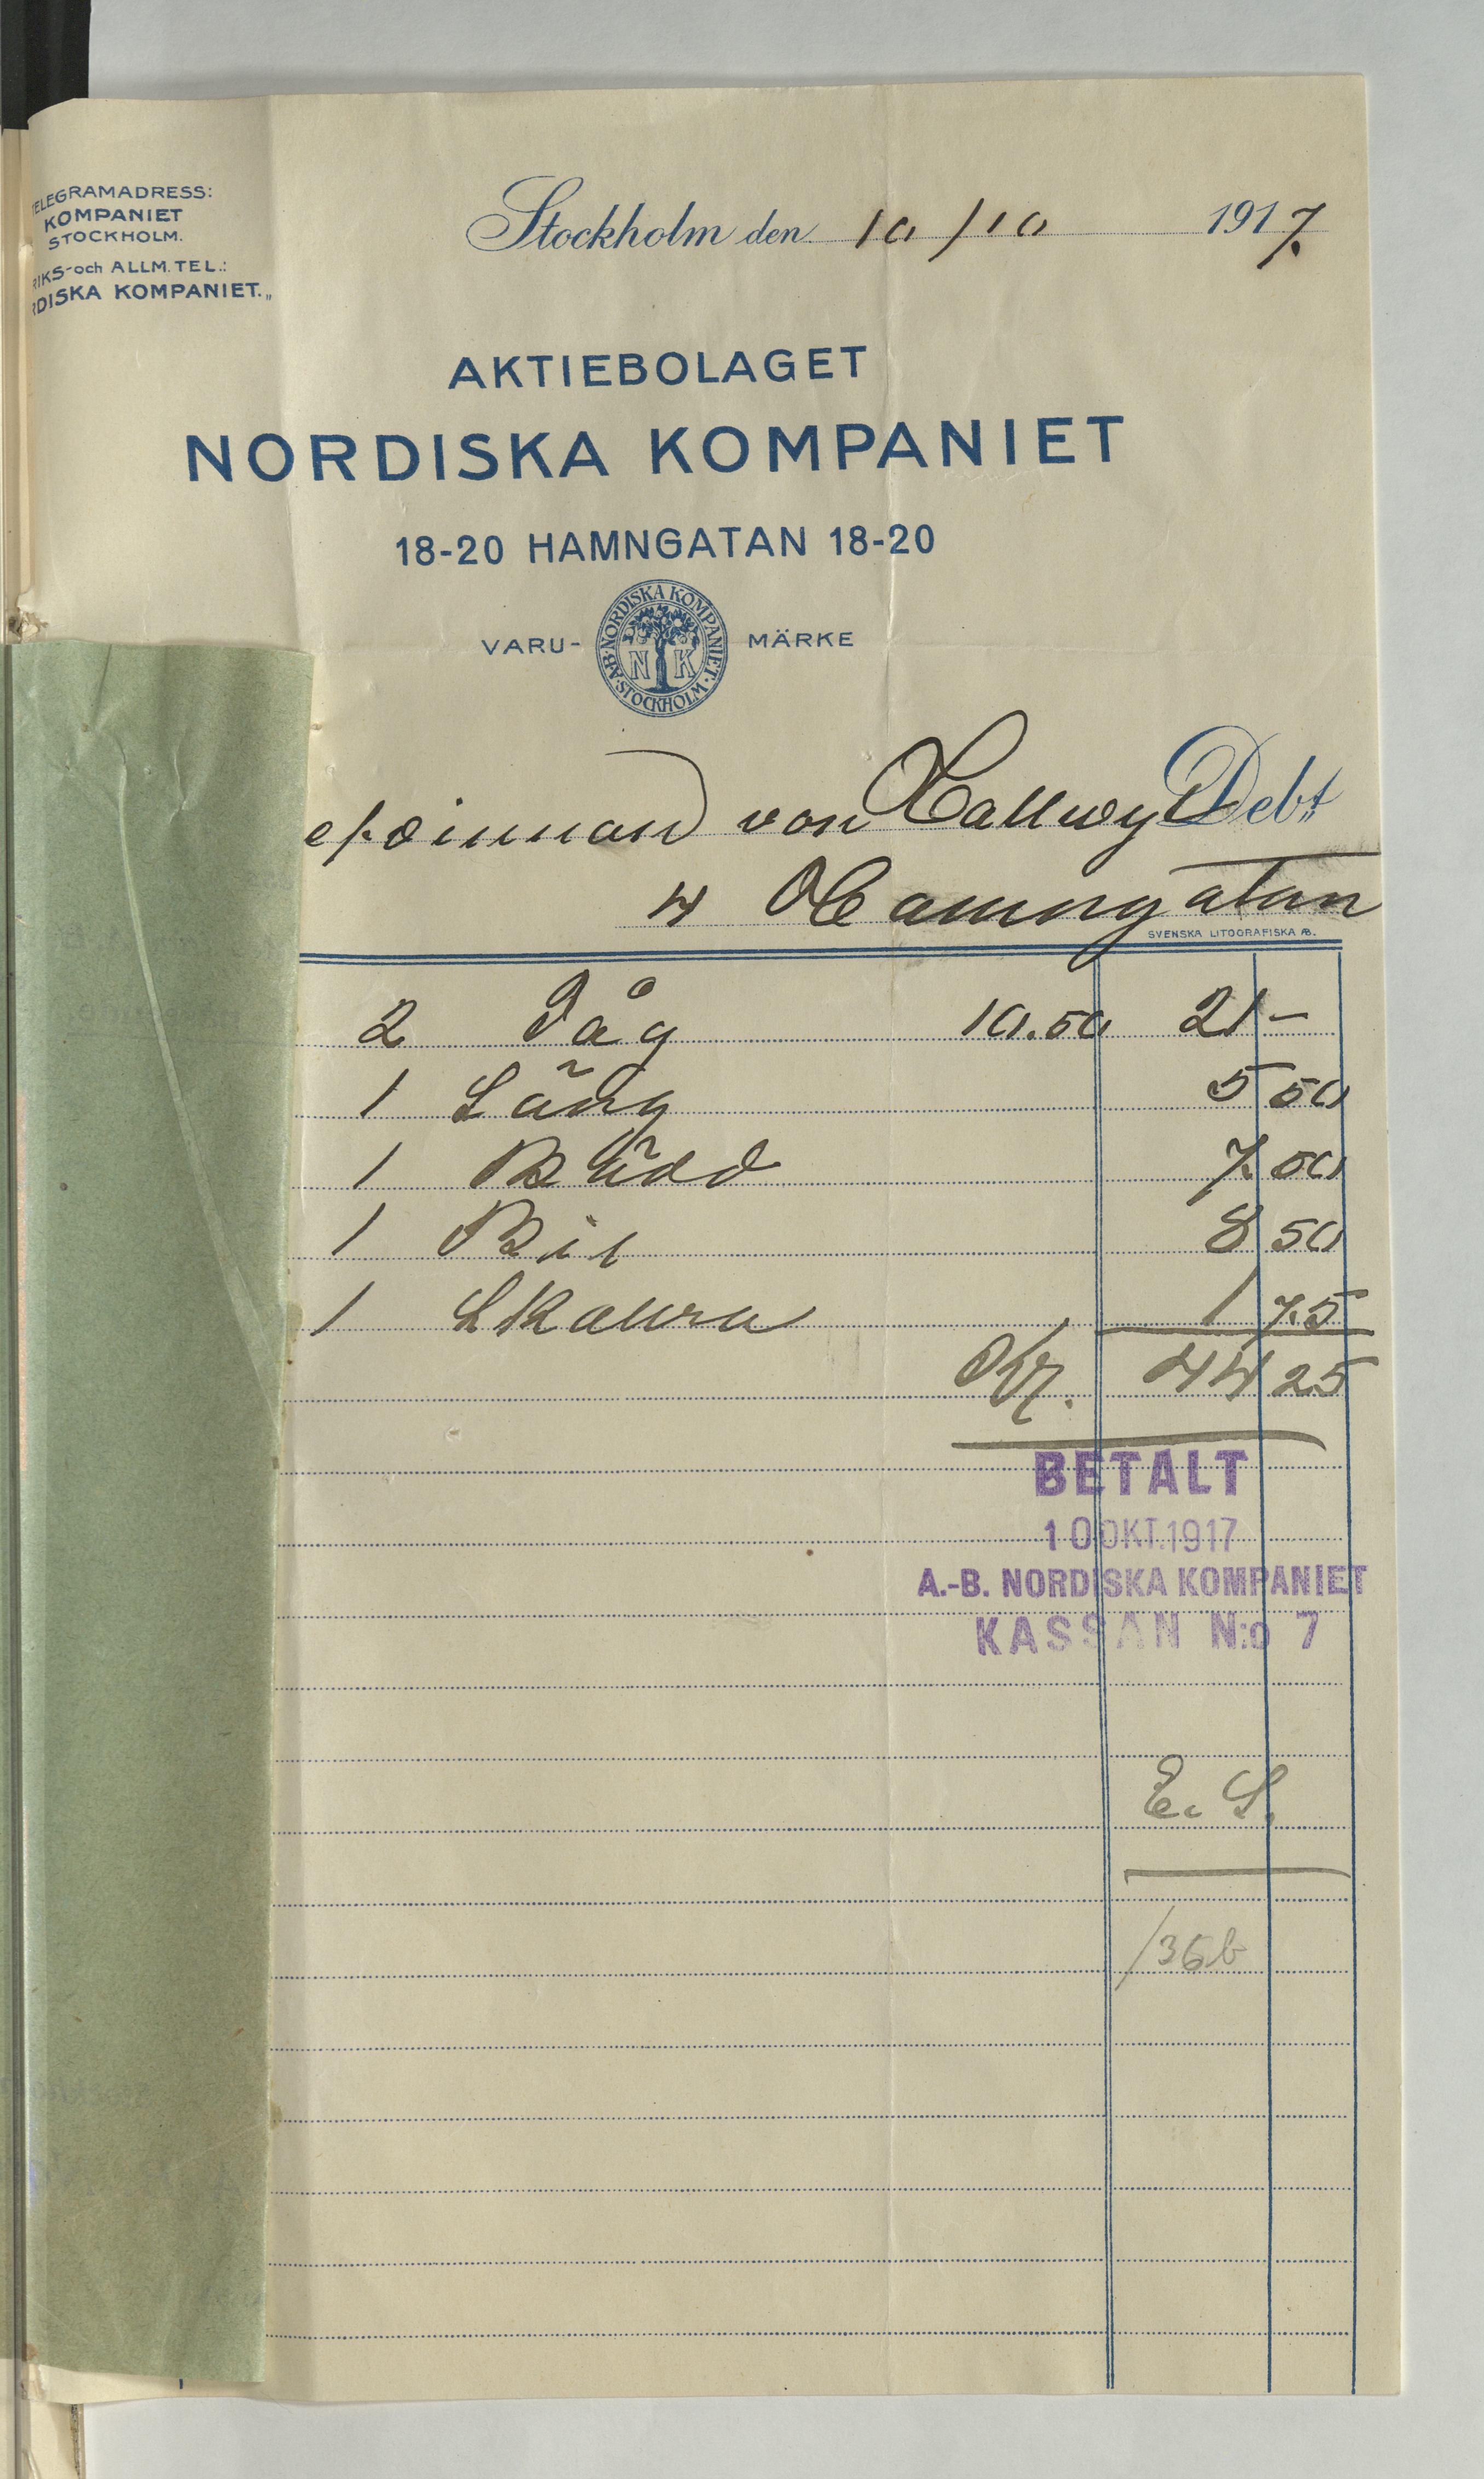 TELEGRAMADRESS:
KOMPANIET
STOCKHOLM.
RIKS- och ALLM. TEL.:
RDISKA KOMPANIET.„
Stockholm den 10/10 1917.
AKTIEBOLAGET
NORDISKA KOMPANIET
18-20 HAMNGATAN 18-20
VARU- MÄRKE
A.B. NORDISKA KOMPANIET. STOCKHOLM.
N K
von Hallwyl Debt
4 Hamngatan
SVENSKA LITOGRAFISKA AB.
2 Tåg 10.50 21 -
1 Säng 5 50
1 Bädd 7. 50
1 Bil 8 50
1 1 75
Kr. 44 25
BETALT
10 OKT. 1917
A.-B. NORDISKA KOMPANIET
KASSAN N:o 7
E. S.
/36b